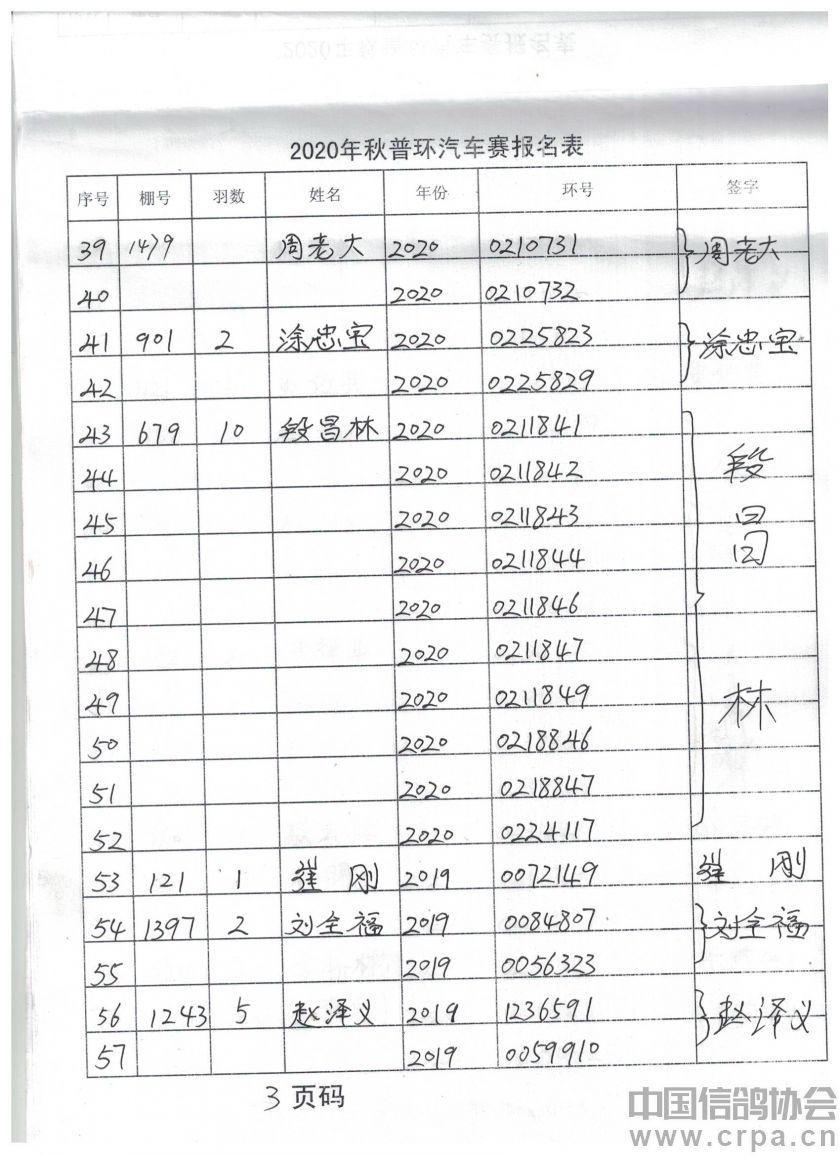 2020年秋普环汽车赛报名表
序号 棚号 羽数 姓名 年份 环号 签字
39 1479 周老大 2020 0210731 周老大
40 2020 0210732
41 901 2 涂忠宝 2020 0225823 涂忠宝
42 2020 0225829
43 679 10 段昌林 2020 0211841 段昌林
44 2020 0211842
45 2020 0211843
46 2020 0211844
47 2020 0211846
48 2020 0211847
49 2020 0211849
50 2020 0218846
51 2020 0218847
52 2020 0224117
53 121 1 崔刚 2019 0072149 崔刚
54 1397 2 刘全福 2019 0084807 刘全福
55 2019 0056323
56 1243 5 赵泽义 2019 1236591 赵泽义
57 2019 0059910
3 页码
中国信鸽协会
www.crpa.cn